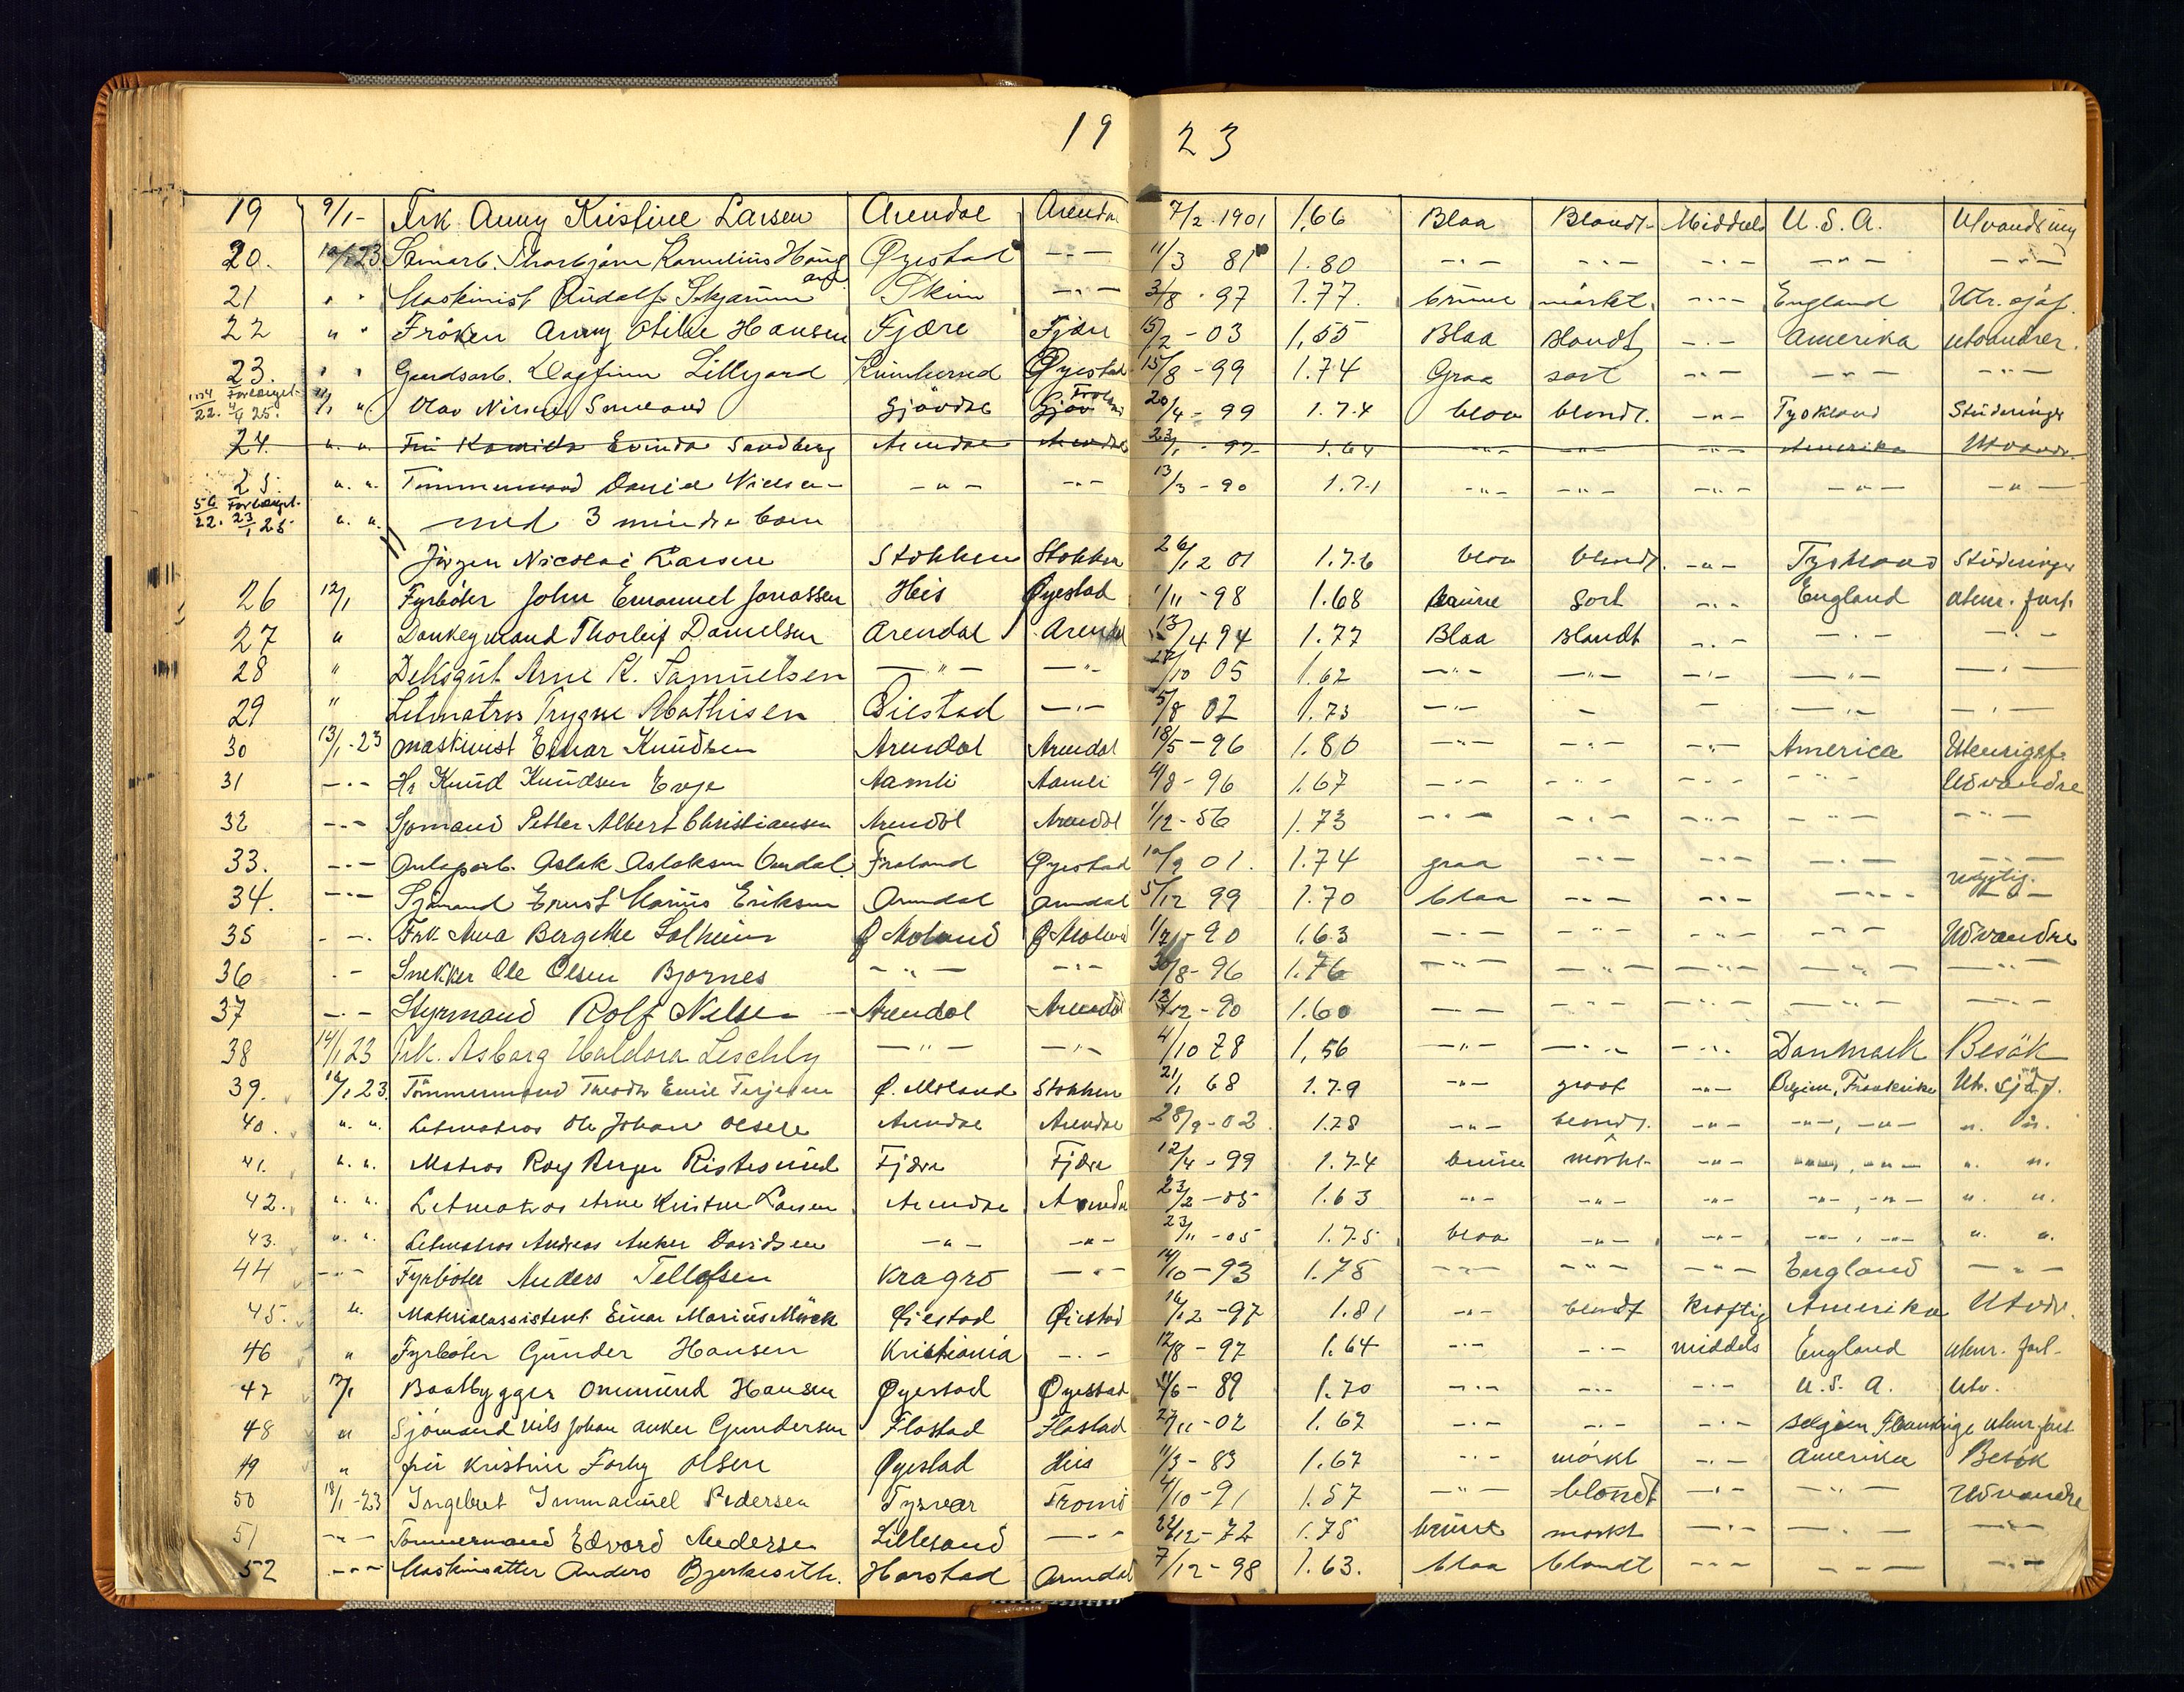 19 23
19 9/1- Frk Anny Kristine Larsen Arendal Arendal 7/2 1901 1,66 Blaa Blondt Middels U.S.A. Utvandring
20. 10/1 23 Thorbjørn Kornelius Haug Øyestad -"- 11/3 81 1.80 -"- -"- -"- -"- -"-
21 " " Maskinist Rudolf -"- 3/8 - 97 1.77. brune mørkt. -"- England Utr. sjøf.
22 " " Frøken Anny Otilie Hansen Fjære Fjære 15/2 - 03 1,55 Blaa Blondt -"- Amerika utvandrer.
23. " " Gaardsarb. Dagfinn Lillejord Øyestad 15/8 - 99 1.74 Graa sort -"- -"- -"-
Forlænget 22. 25. 11/1 " Olav Gjøvdal Froland 20/4 - 99 1.74 blaa blondt. -"- Tyskland Studeringer
24. ". ". Fru Sandberg Arendal Arendal 23/1 - 97 1.64 -"- -"- -"- Amerika Utvandr.
25. ". ". Tømmermand Daniel Nielsen -"- -"- 13/3 - 90 1.71 -"- -"- -"- -"- -"-
Forlænget 22. 23/1 25 ". ". med 3 mindre barn
Jørgen Nicolai Larsen Stokken Stokken 26/12 01 1.76 blaa blondt. -"- Tyskland Studeringer
26 12/1 Fyrbøter John Emanuel Jonassen His Øyestad 1/11 - 98 1.68 brune Sort -"- England utenr. fart.
27 " Donkeymand Thorleif Danielsen Arendal Arendal 13/4 94 1.77 Blaa Blondt -"- -"- -"-
28 " Deksgut Arne K. Samuelsen -"- -"- /10 05 1.62 -"- -"- -"- -"- -"-
29 " Letmatros Trygve Mathisen Øiestad -"- 5/8 02 1.73 -"- - - -"- -"-
30 13/1-23 Maskinist Einar Knudsen Arendal Arendal 18/5 - 96 1.80 -"- -"- -"- America Utenrigsf.
31 -"- Hr Knud Knudsen Evje Aamli Aamli 4/8 - 96 1.67 -"- -"- -"- -"- Udvandre
32 -"- Sjømand Petter Albert Christiansen Arendal Arendal 1/12 - 56 1.73 -"- -"- -"- -"- -"-
33. -"- Aslak Aslaksen Froland Øyestad 10/9 01. 1.74 graa -"- -"- -"- -"-
34. -"- Sjømand Ernst Marius Eriksen Arendal Arendal 5/12 99 1.70 blaa -"- -"- -"- -"-
35 -"- Frk. Anna Bergitte Solheim Ø Moland Ø Moland - 90 1.63 -"- -"- -"- -"- Udvandre
36 -"- Snekker Ole Olsen Bjørnes -"- -"- 30/8 - 96 1.76 -"- -"- -"- -"- -"-
37 -"- Styrmand Rolf Nilsen Arendal Arendal 12/12 - 90 1.60 -"- -"- -"- -"- -"-
38 14/1 23 Frk. Asbørg Haldora Leschly -"- -"- 4/10 78 1,56 -"- -"- -"- Danmark Besøk
39. 16/1 23. Tømmermand Theodor Emil Terjesen Ø. Moland Stokken 21/1 68 1.79 -"- graat -"- Belgien, Frankrike Utr. Sjøf.
40. ". ". Letmatros Ole Johan Olsen Arendal Arendal 28/9 - 02. 1.78 -"- blondt. -"- -"-, -"- ". ".
41. ". ". Matros Roy Berger Fjære Fjære 12/4 - 99 1.74 brune mørkt -"- -"-, -"- ". ".
42. ". ". Letmatros Arne Kristen Larsen Arendal Arendal 23/2 - 05 1.63 -"- -"- -"- -"-, -"- ". ".
43. ". ". Letmatros Andreas Anker Davidsen -"- -"- 23/11 - 05 1.75 blaa -"- -"- -"-, -"- ". ".
44 -"- Fyrbøter Anders Tellefsen Kragrø -"- 14/10 - 93 1.78 -"- -"- -"- England -"-
45. ". Materialassistent Einar Marius Mørch Øiestad Øiestad 16/12 - 97 1.81 -"- blondt kraftig Amerika Utvdr.
46 " Fyrbøter Gunder Hansen Kristiania -"- 12/8 - 97 1.64 -"- -"- middels England utenr. fart.
47 17/1 Baatbygger Ommund Hansen Øyestad Øyestad /6 - 89 1.70 -"- -"- -"- U.S.A. Utv.
48 " Sjømand Nils Johan Anker Gundersen Flostad Flostad 27/11 - 02 1.67 -"- -"- -"- Belgien Frankrige utenr. fart
49 " fru Kristine Olsen Øyestad His 11/3 - 83 1.67 -"- mørkt -"- Amerika Besøk
50 18/1-23 Ingebret Immanuel Pedersen Tysvær Tromø 4/10 - 91 1.57 -"- blondt -"- -"- Udvandre
51 -"- Tømmermand Edvard Andersen Lillesand -"- 22/12 - 72 1.75 brune mørkt -"- -"- -"-
52 -"- Maskinsætter Anders Harstad Arendal 7/12 - 98 1.63. blaa blondt -"- -"- -"-